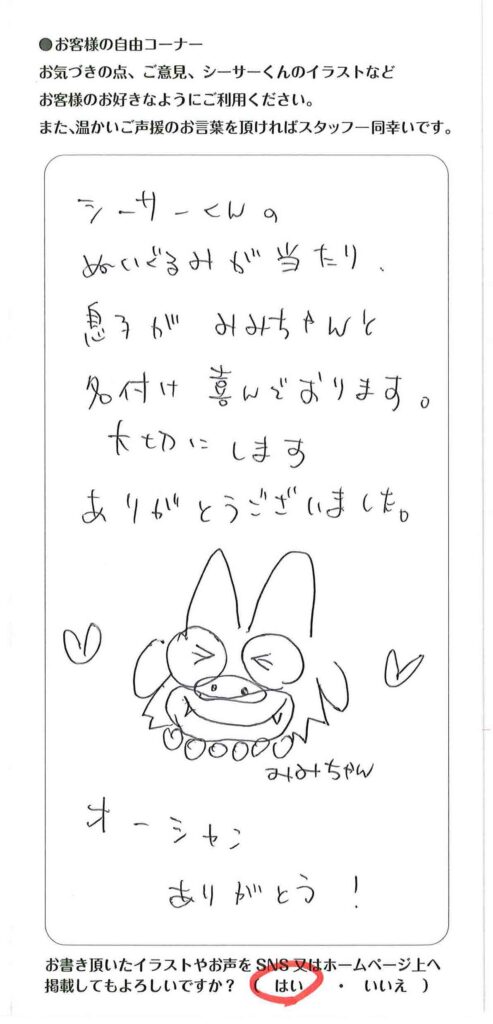 ●お客様の自由コーナー
お気づきの点、ご意見、シーサーくんのイラストなど
お客様のお好きなようにご利用ください。
また、温かいご声援のお言葉を頂ければスタッフ一同幸いです。
シーサーくんの
ぬいぐるみが当たり、
息子が みみちゃんと
名付け 喜んでおります。
大切にします
ありがとうございました。
みみちゃん
オーシャン
ありがとう!
お書き頂いたイラストやお声をSNS又はホームページ上へ
掲載してもよろしいですか? ( はい ・ いいえ )